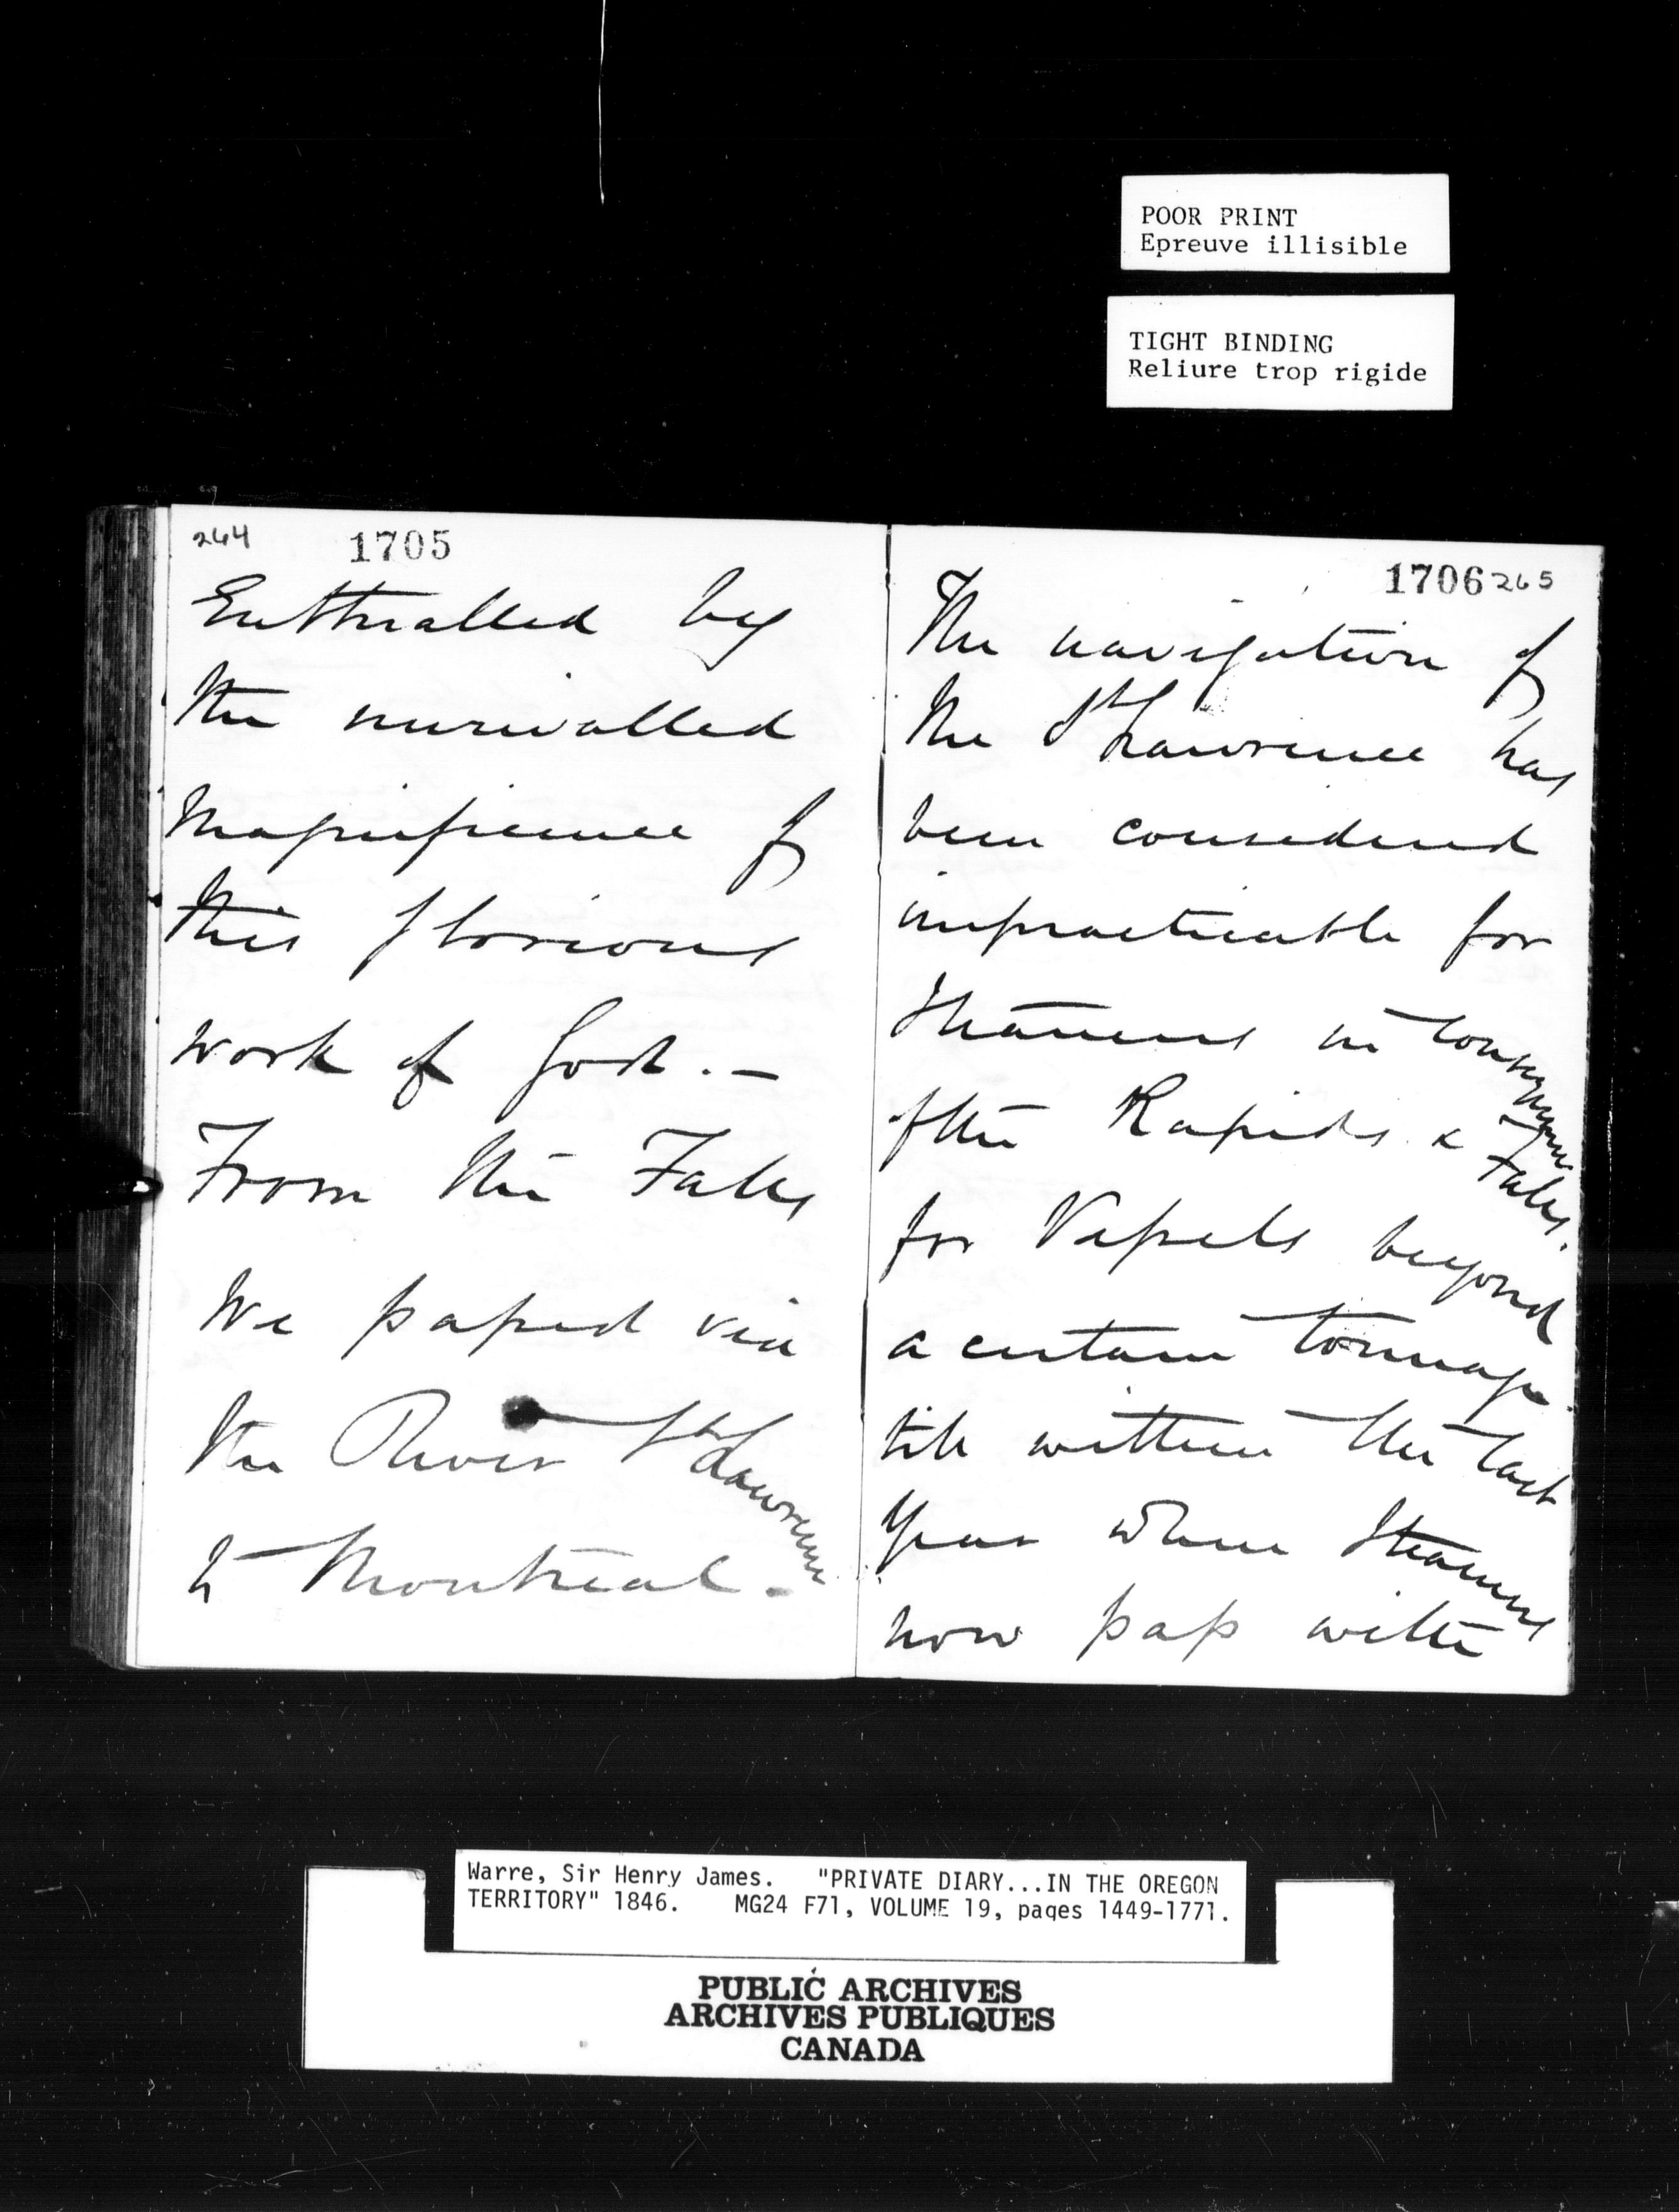 POOR PRINT
Epreuve illisible
TIGHT BINDING
Reliure trop rigide
264 1705
Enthralled by
the unrivalled
Magnificence of
this glorious
work of God. —
From the Falls
We passed via
the River St Lawrence
to Montreal -
1706 265
The navigation of
the St Lawrence has
been considered
impracticable for
Steamers in consequence
of the Rapids & Falls.
for Vessels beyond
a certain tonnage
till within the last
Year when Steamers
now pass with
Warre, Sir Henry James. "PRIVATE DIARY...IN THE OREGON
TERRITORY" 1846. MG24 F71, VOLUME 19, pages 1449-1771.
PUBLIC ARCHIVES
ARCHIVES PUBLIQUES
CANADA